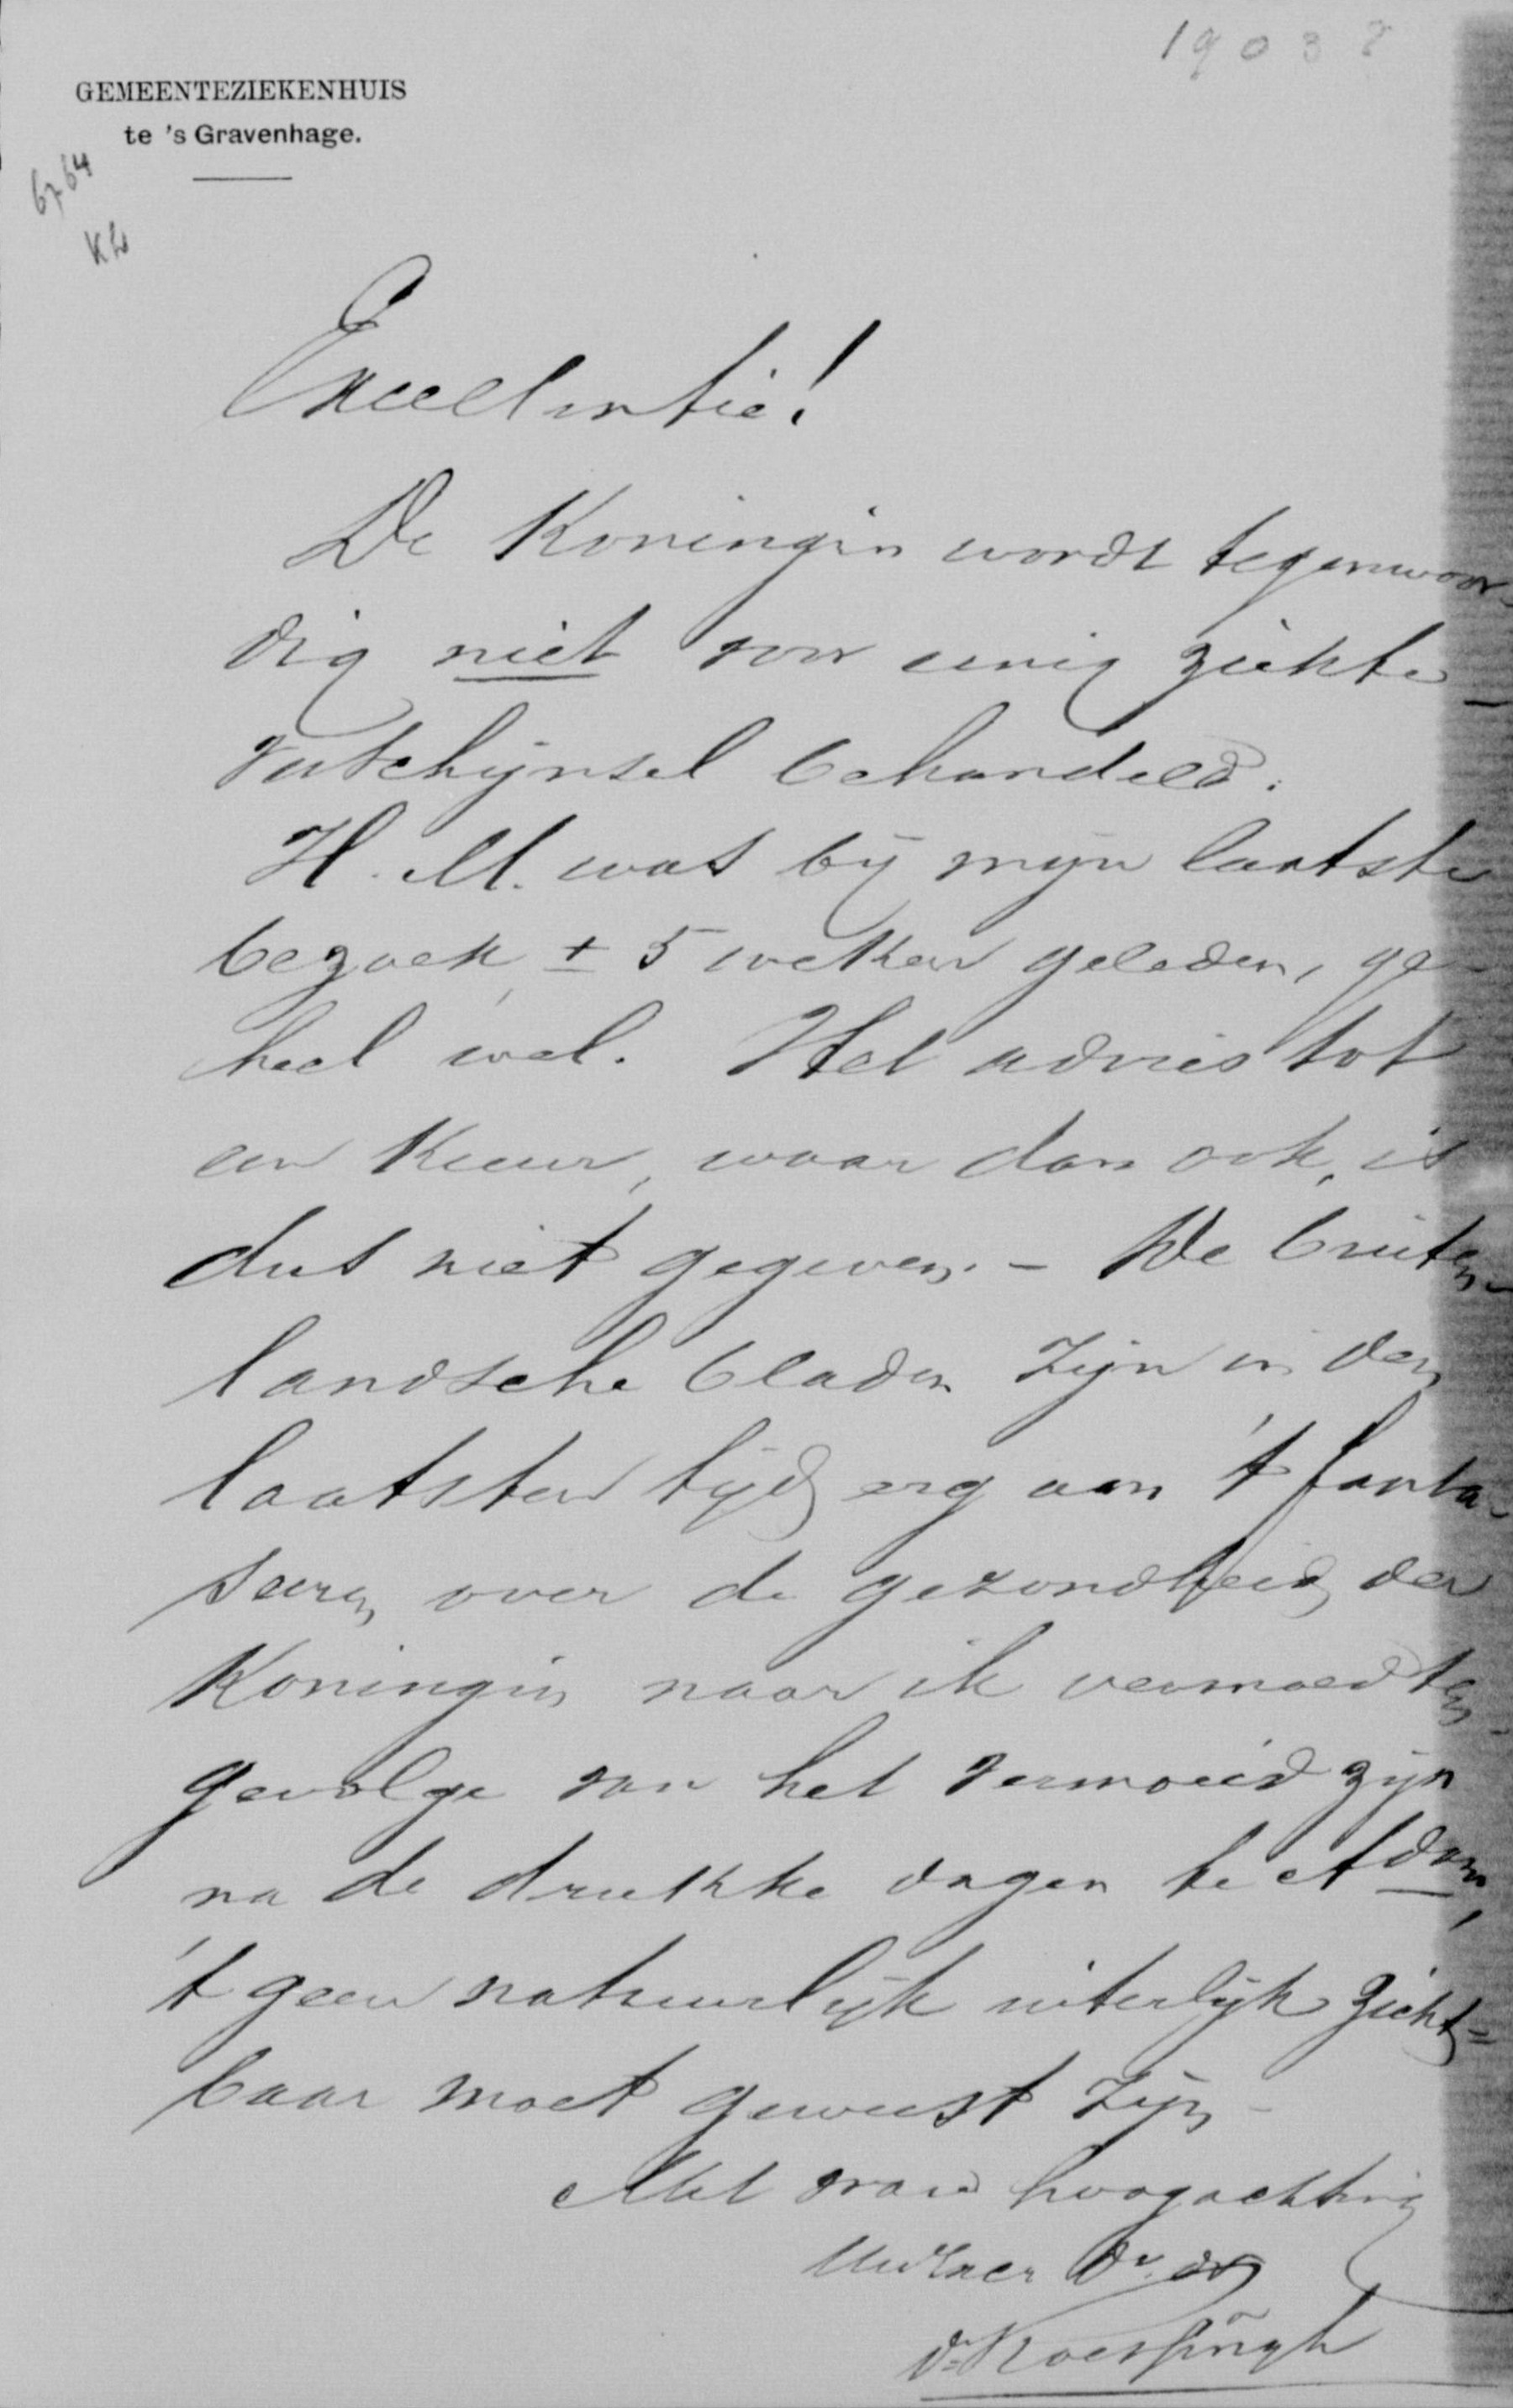 1903 ?
GEMEENTEZIEKENHUIS
te 's Gravenhage.
6764
Excellentie!
De Koningin wordt tegenwoor-
dig niet voor eenig ziekte-
verschijnsel behandeld.
H. M. was bij mijn laatste
bezoek, ± 5 weken geleden, ge-
heel wel. Het advies tot
een Kuur, waar dan ook, is
dus niet gegeven. - De buiten-
landsche bladen zijn in den
laatsten tijd erg aan 't fanta-
seeren over de gezondheid der
Koningin naar ik vermoed ten-
gevolge van het vermoeid zijn
na de drukke dagen te Adam,
't geen natuurlijk uiterlijk zicht=
baar moet geweest zijn -
Met ware hoogachting
UwExcer Dr. dr
Dr Roessingh